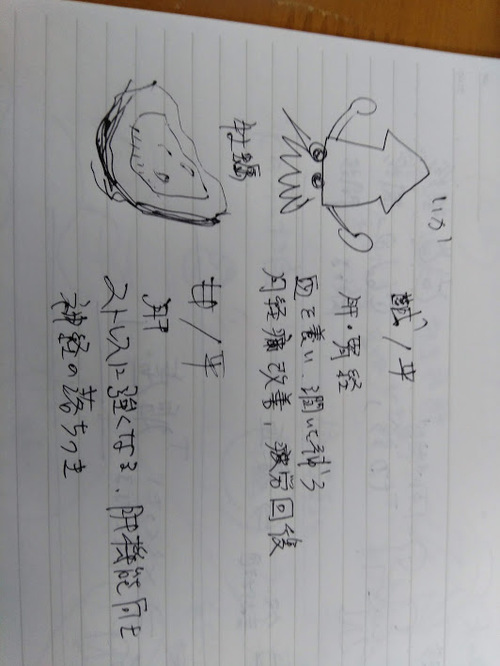 いか
鹹/平
肝・腎経
血を養い、潤い補う
月経痛改善、疲労回復
牡蠣
甘/平
肝
ストレスに強くなる、肝機能向上
神経の落ちつき